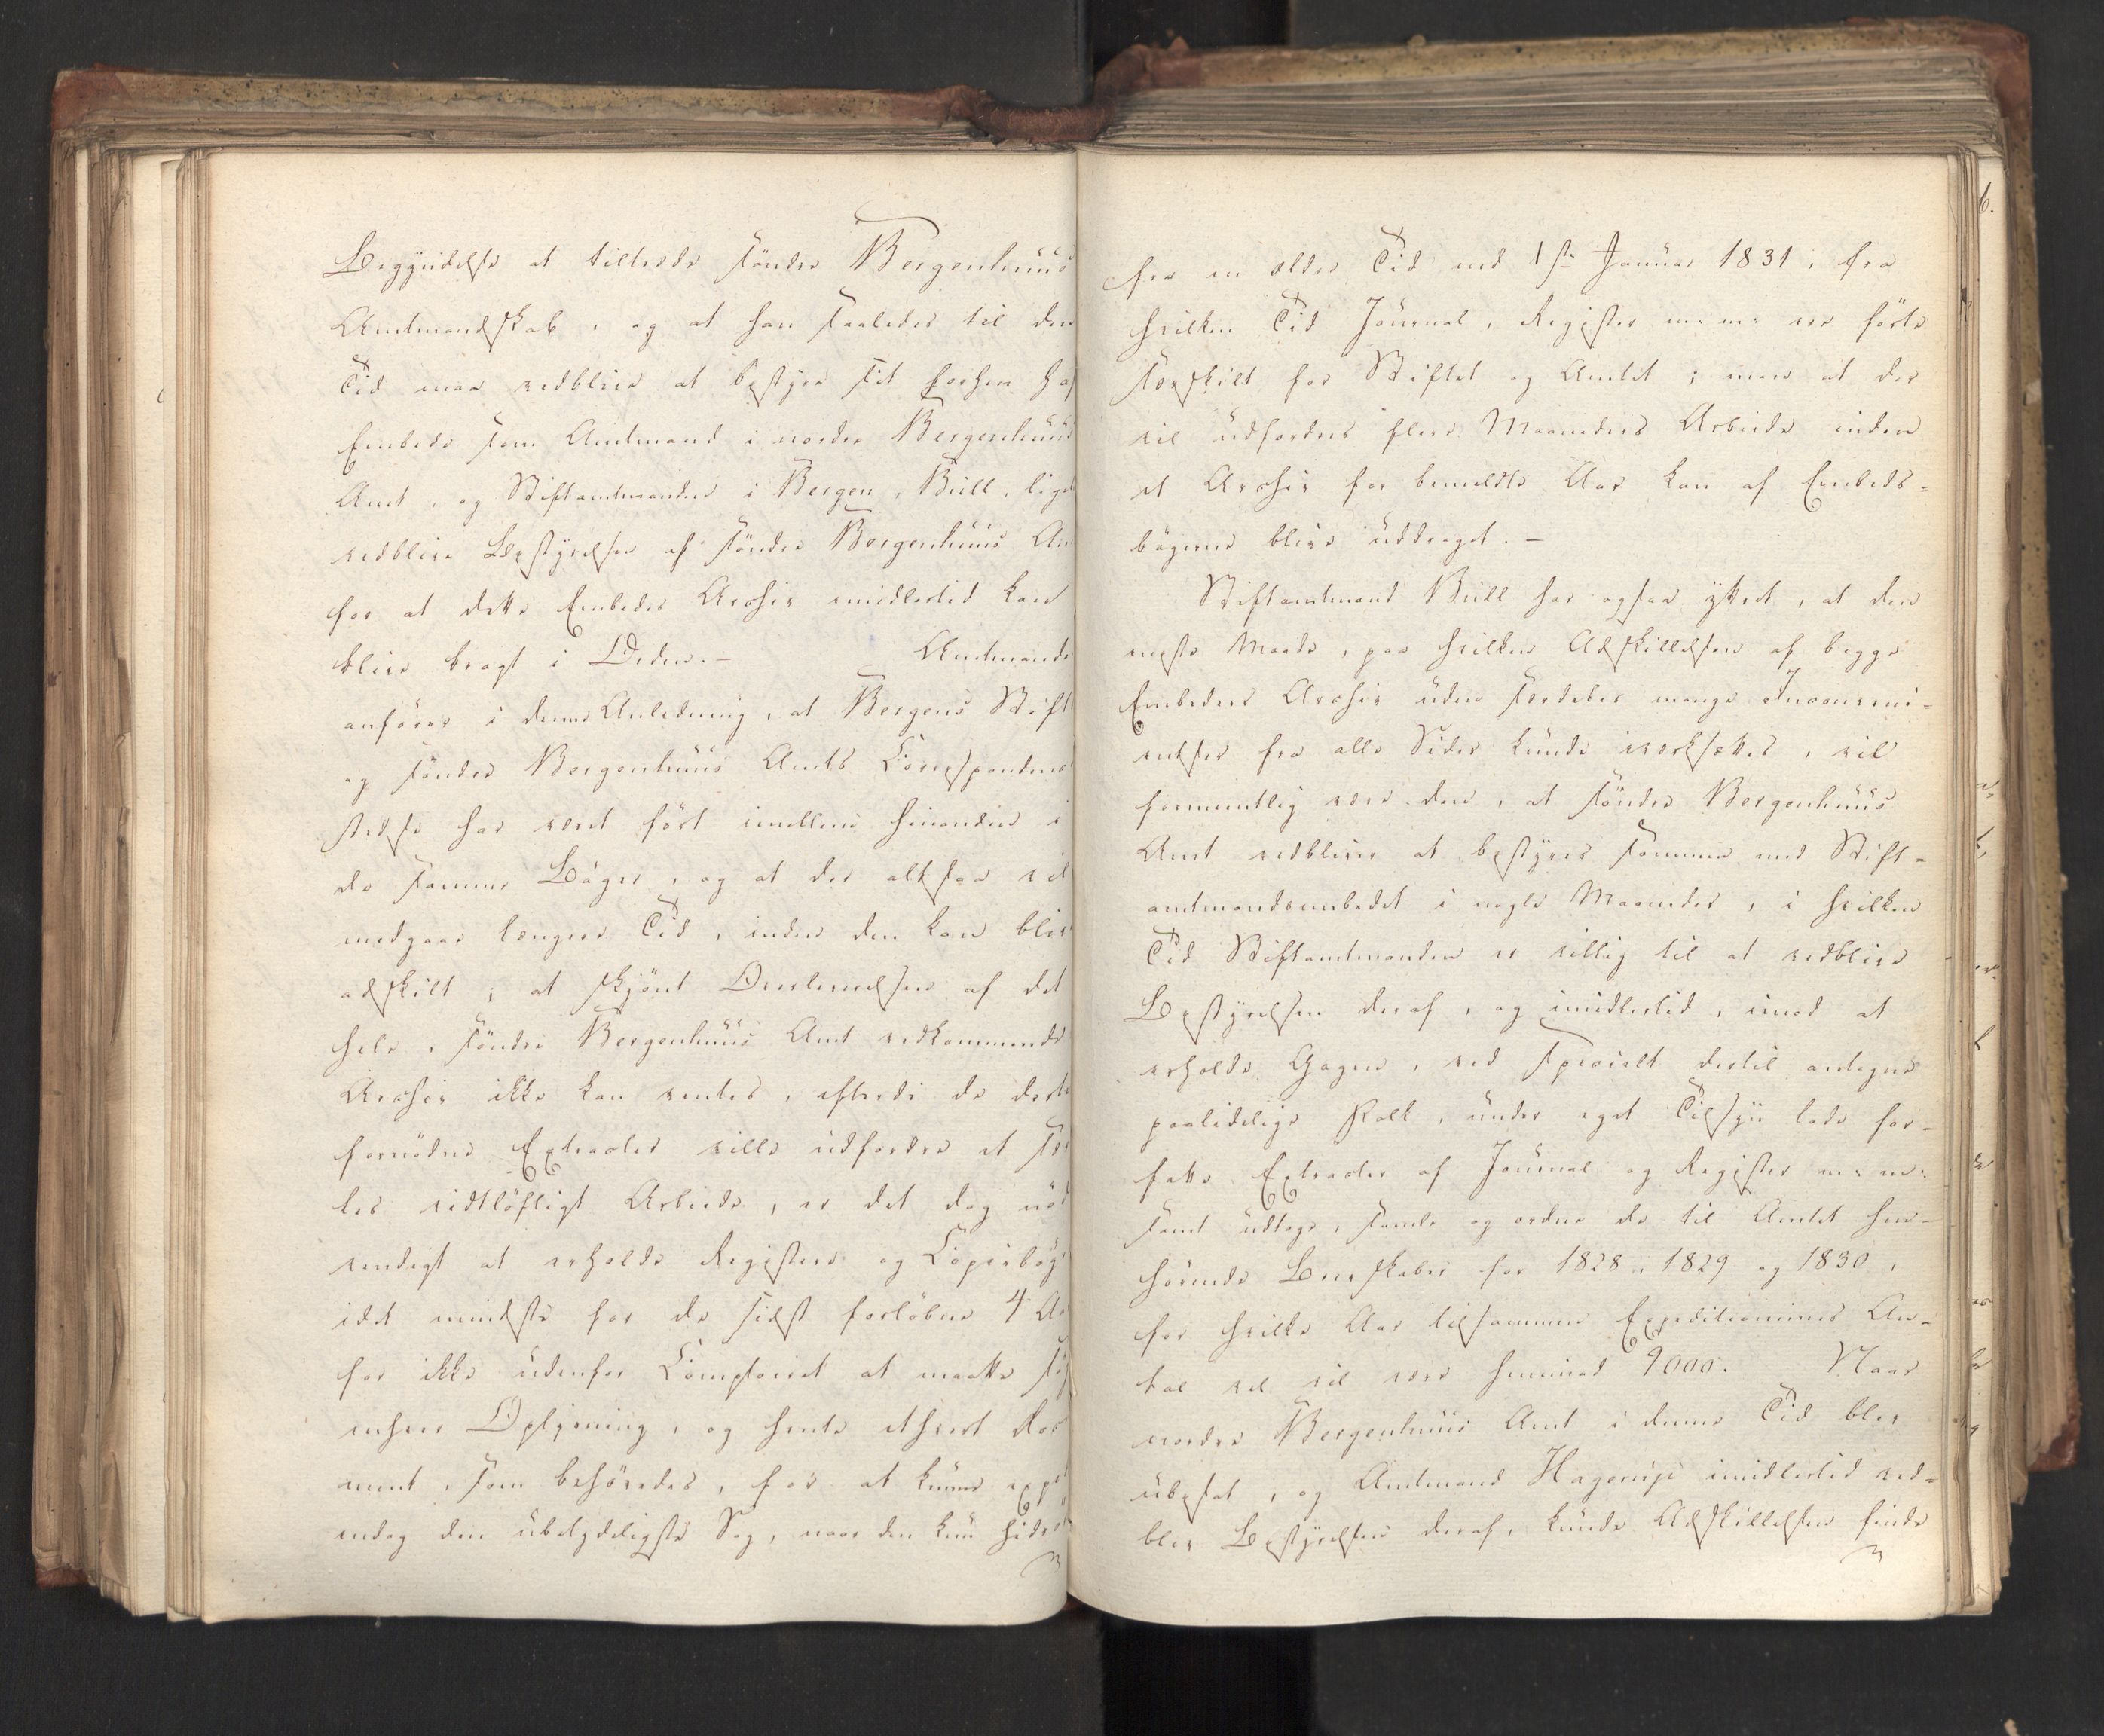 Begyndelse at tiltræde søndre Bergenhuus
Amtmandskab, og at han saaledes til den
Tid maa vedblive at bestyre sit forhen hav
Embede som Amtmand i nordre Bergenhuus
Amt, og Stiftamtmanden i Bergen, Bull, lige
vedblive Bestyrelsen af søndre Bergenhuus Am
for at dette Embedes Archiv imidlertid kan
blive bragt i Orden.- Amtmanden
anfører i denne Anledning, at Bergens Stift
og søndre Bergenhuus Amts Correspondence
stedse har været ført imellem hinanden i
de samme Bøger, og at der altsaa vil
medgaae længere Tid, inden den kan bliv
adskilt; at skjønt Overleverelsen af det
hele, søndre Bergenhuus Amt vedkommende
Archiv ikke kan ventes, efterdi de dertil
fornødne Extracter ville udfordre et sær
les vidtløftigt Arbeide, er det dog nød
vendigt at erholde Registere og Copiebøg
idet mindste for de sidst forløbne 4 Aar
for ikke udenfor Comptoiret at maatte søg
enhver Oplysning, og hente ethvert Doc
ment, som behøvedes, for at kunne expe
endog den ubetydeligste Sag, naar den kun hidrør
fra en ældre Tid end 1ste Januar 1831, fra
hvilken Tid Journal, Register m: m: ere førte
særskilt for Stiftet og Amtet; men at der
vil udfordres flere Maaneders Arbeide inden
et Archiv for bemeldte Aar kan af Embeds=
bøgerne blive uddraget.-
Stiftamtmand Bull har ogsaa yttret, at den
eneste Maade, paa hvilken Adskillelsen af begge
Embeders Archiv uden særdeles mange Inconveni-
entser fra alle Sider kunde iværksættes, vil
formeentlig være den, at søndre Bergenhuus
Amt vedbliver at bestyres sammen med Stift-
amtmandsembedet i nogle Maaneder, i hvilken
Tid Stiftamtmanden er villig til at vedblive
Bestyrelsen deraf, og imidlertid, imod at
erholde Gagen, ved specielt dertil antagne
paalidelige Folk, under eget Tilsyn lade for-
fatte Extracter af Journal og Register m: m:
samt udtage, samle og ordne de til Amtet hen-
hørende Brevskaber for 1828, 1829 og 1830,
for hvilke Aar tilsammen Expeditionernes An-
tal vel vil være henimod 9000. Naar
nordre Bergenhuus Amt i denne Tid blev
ubesat, og Amtmand Hagerup imidlertid ved=
blev Bestyrelsen deraf, kunde Adskillelsen finde